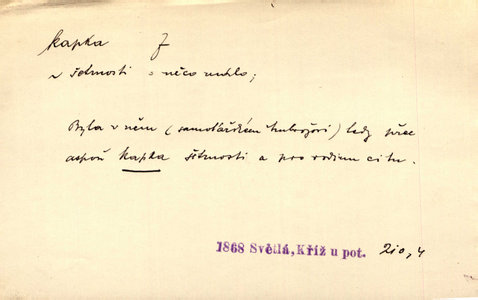 kapka f
~ šetrnosti o něco
Byla v něm (samotářském) tedy přec
aspoň kapka šetrnosti a pro rodinu citu.
1868 Světlá, Kříž u pot. 210,4